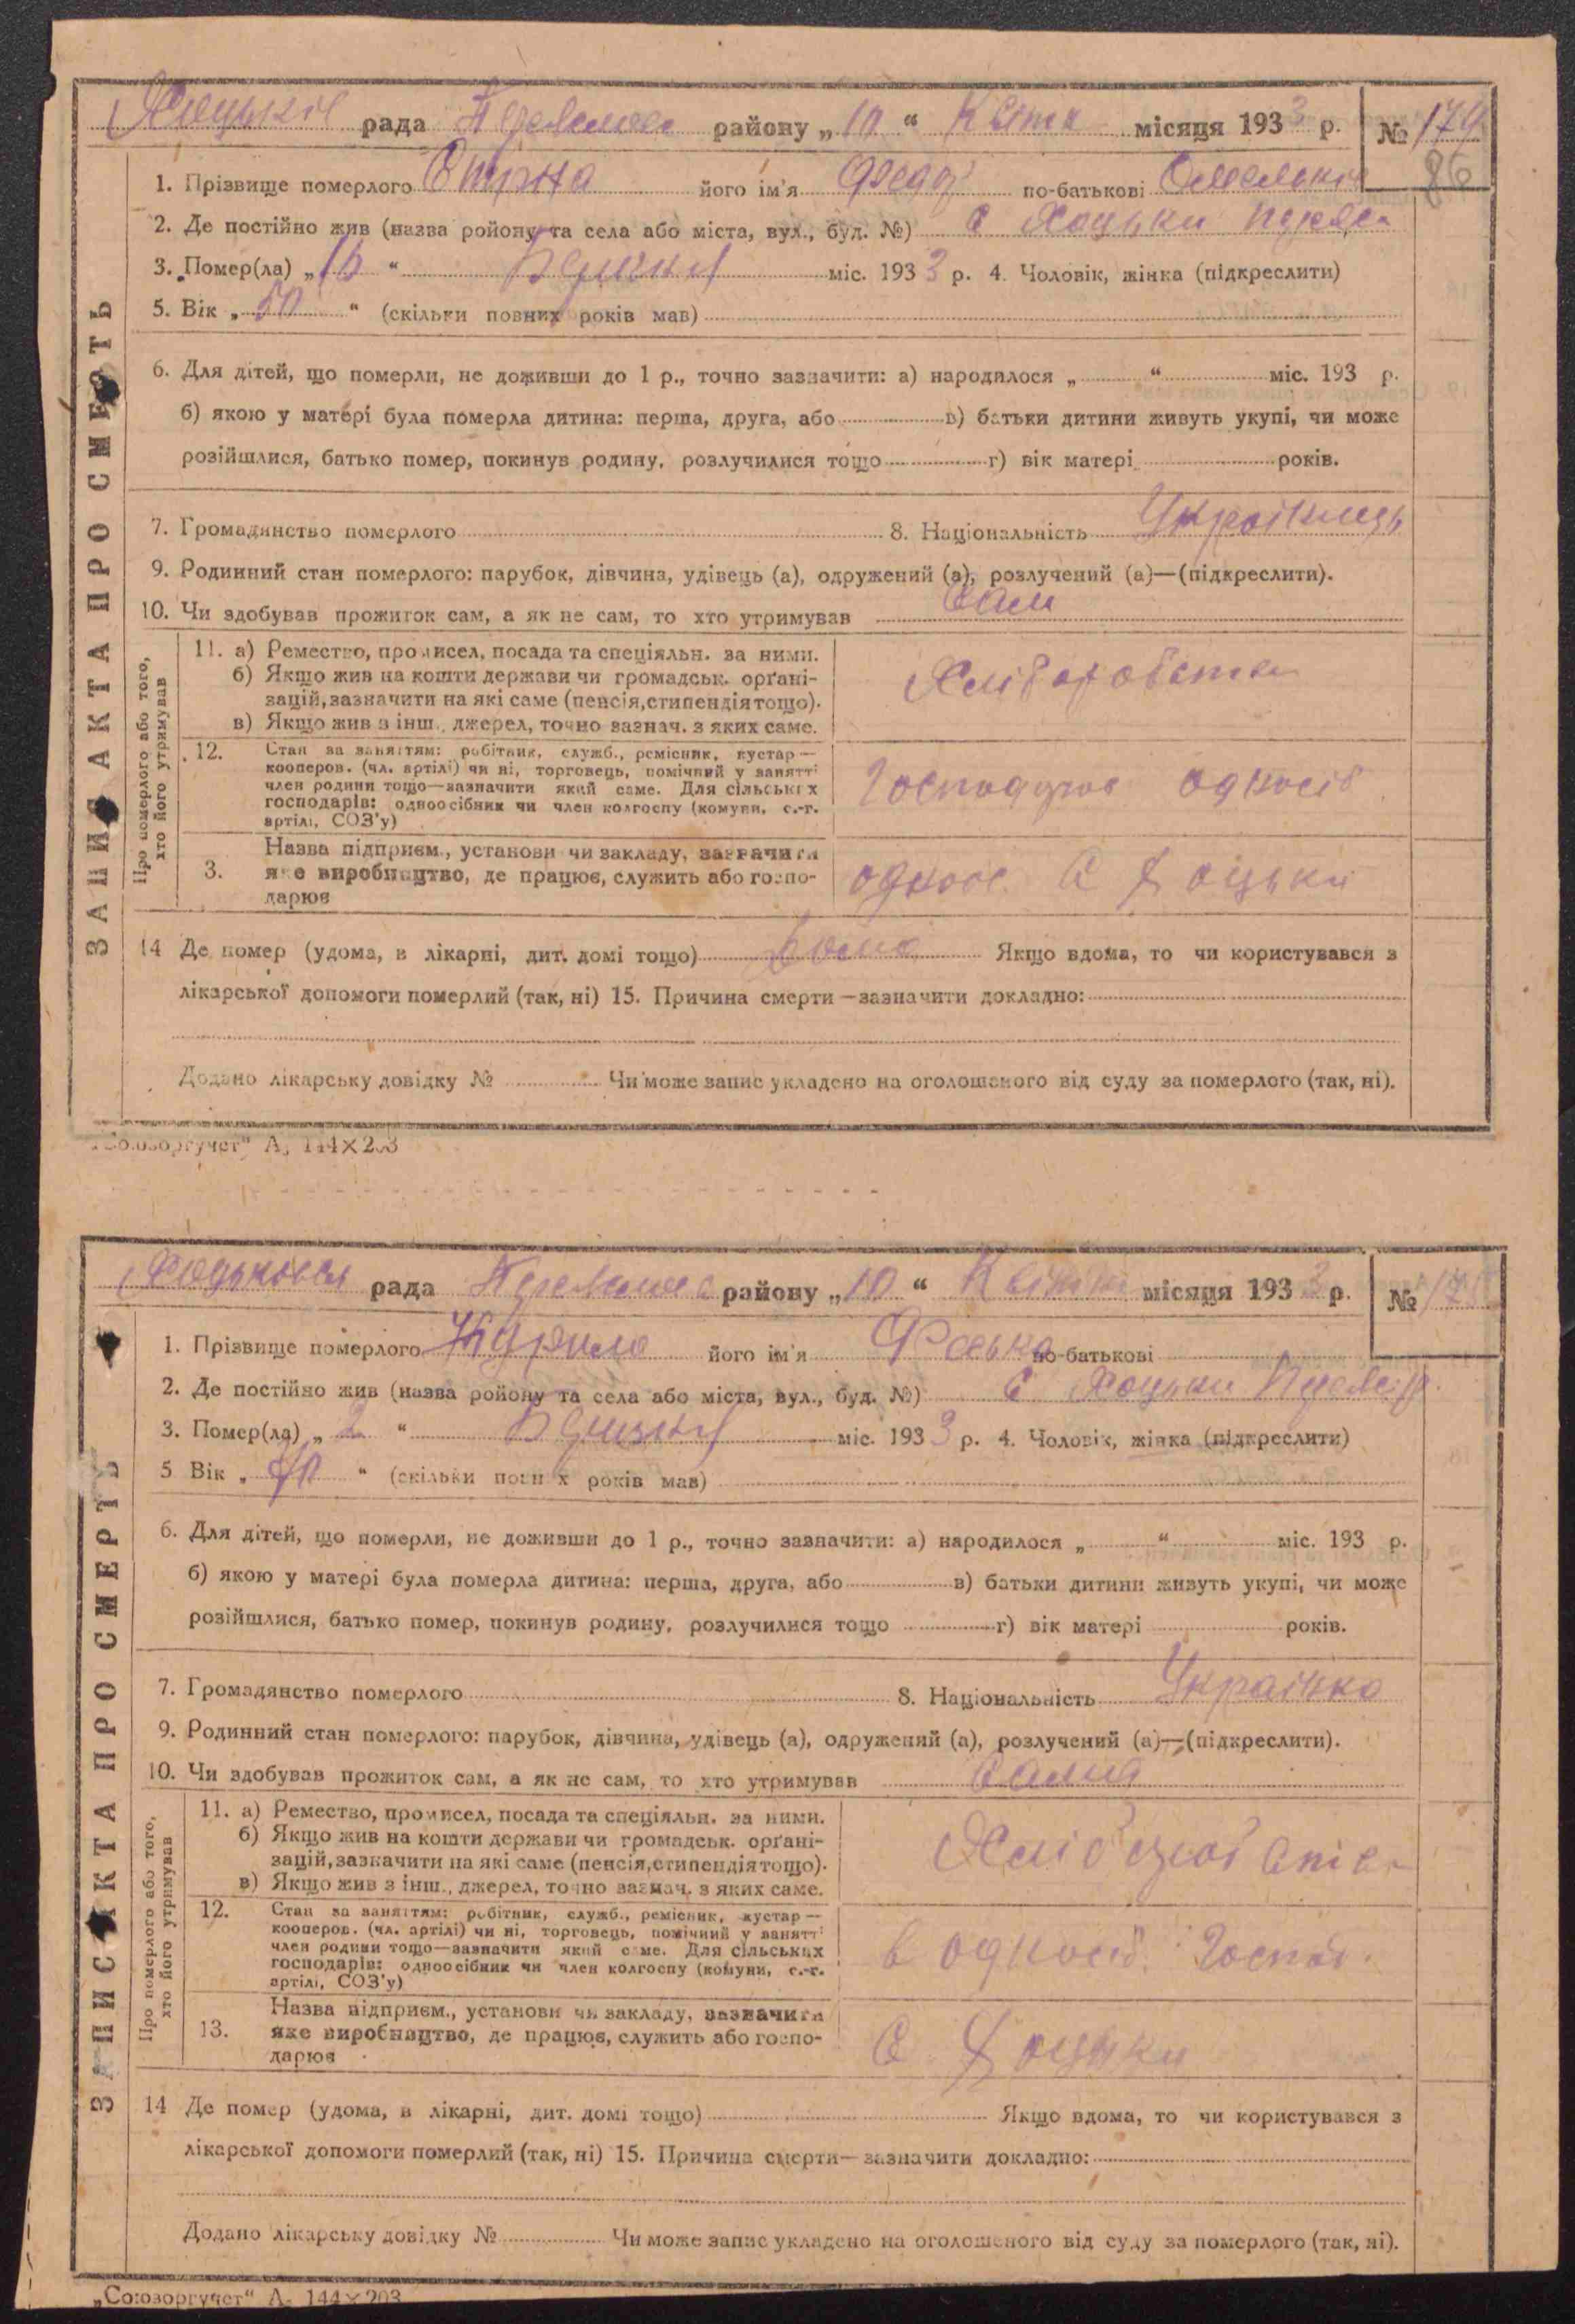 Хоцьків рада Переяслав району „10“ Квітн місяця 1933 р. № 179
86
1. Прізвище померлого його ім'я Федір по-батькові Омелькович
2. Де постійно жив (назва ройону та села або міста, вул., буд. №) с Хоцьки
3. Помер(ла) „ “ Березня міс. 1933 р. 4. Чоловік, жінка (підкреслити)
5. Вік „50“ (скільки повних років мав)
6. Для дітей, що померли, не доживши до 1 р., точно зазначити: а) народилося „ “ міс. 193 р.
б) якою у матері була померла дитина: перша, друга, або в) батьки дитини живуть укупі, чи може
розійшлися, батько помер, покинув родину, розлучилися тощо г) вік матері років.
7. Громадянство померлого 8. Національність Українець
9. Родинний стан померлого: парубок, дівчина, удівець (а), одружений (а), розлучений (а)—(підкреслити).
10. Чи здобував прожиток сам, а як не сам, то хто утримував сам
ЗАПИС АКТА ПРО СМЕРТЬ
Про померлого або того, хто його утримував
11. а) Ремество, промисел, посада та спеціяльн. за ними.
б) Якщо жив на кошти держави чи громадськ. орґані-
зацій, зазначити на які саме (пенсія, стипендія тощо).
в) Якщо жив з інш., джерел, точно зазнач. з яких саме.
12. Стан за заняттям: робітник, служб., ремісник, кустар—
кооперов. (чл. артілі) чи ні, торговець, помічний у занятті
член родини тощо—зазначити який саме. Для сільських
господарів: одноосібник чи член колгоспу (комуни, с.-г.
артілі, СОЗ'у)
однос
3. Назва підприєм., установи чи закладу, зазначити
яке виробництво, де працює, служить або госпо-
дарює
однос. с Хоцьки
14 Де помер (удома, в лікарні, дит. домі тощо) Якщо вдома, то чи користувався з
лікарської допомоги померлий (так, ні) 15. Причина смерти—зазначити докладно:
Додано лікарську довідку № Чи може запис укладено на оголошеного від суду за померлого (так, ні).
„Союзоргучет“ А₅ 144×203
Хоцьковська рада Переяслав району „10“ Квітн місяця 1933 р. №
1. Прізвище померлого його ім'я Феська по-батькові
2. Де постійно жив (назва ройону та села або міста, вул., буд. №) с Хоцьки
3. Помер(ла) „2“ Березня міс. 1933 р. 4. Чоловік, жінка (підкреслити)
5 Вік „ “ (скільки повних років мав)
6. Для дітей, що померли, не доживши до 1 р., точно зазначити: а) народилося „ “ міс. 193 р.
б) якою у матері була померла дитина: перша, друга, або в) батьки дитини живуть укупі, чи може
розійшлися, батько помер, покинув родину, розлучилися тощо г) вік матері років.
7. Громадянство померлого 8. Національність Українка
9. Родинний стан померлого: парубок, дівчина, удівець (а), одружений (а), розлучений (а)—(підкреслити).
10. Чи здобував прожиток сам, а як не сам, то хто утримував сама
ЗАПИС АКТА ПРО СМЕРТЬ
Про померлого або того, хто його утримував
11. а) Ремество, промисел, посада та спеціяльн. за ними.
б) Якщо жив на кошти держави чи громадськ. орґані-
зацій, зазначити на які саме (пенсія, стипендія тощо).
в) Якщо жив з інш., джерел, точно зазнач. з яких саме.
12. Стан за заняттям: робітник, служб., ремісник, кустар—
кооперов. (чл. артілі) чи ні, торговець, помічний у занятті
член родини тощо—зазначити який саме. Для сільських
господарів: одноосібник чи член колгоспу (комуни, с.-г.
артілі, СОЗ'у)
в
13. Назва підприєм., установи чи закладу, зазначити
яке виробництво, де працює, служить або госпо-
дарює
с. Хоцьки
14 Де помер (удома, в лікарні, дит. домі тощо) Якщо вдома, то чи користувався з
лікарської допомоги померлий (так, ні) 15. Причина смерти—зазначити докладно:
Додано лікарську довідку № Чи може запис укладено на оголошеного від суду за померлого (так, ні).
„Союзоргучет“ А₅ 144×203